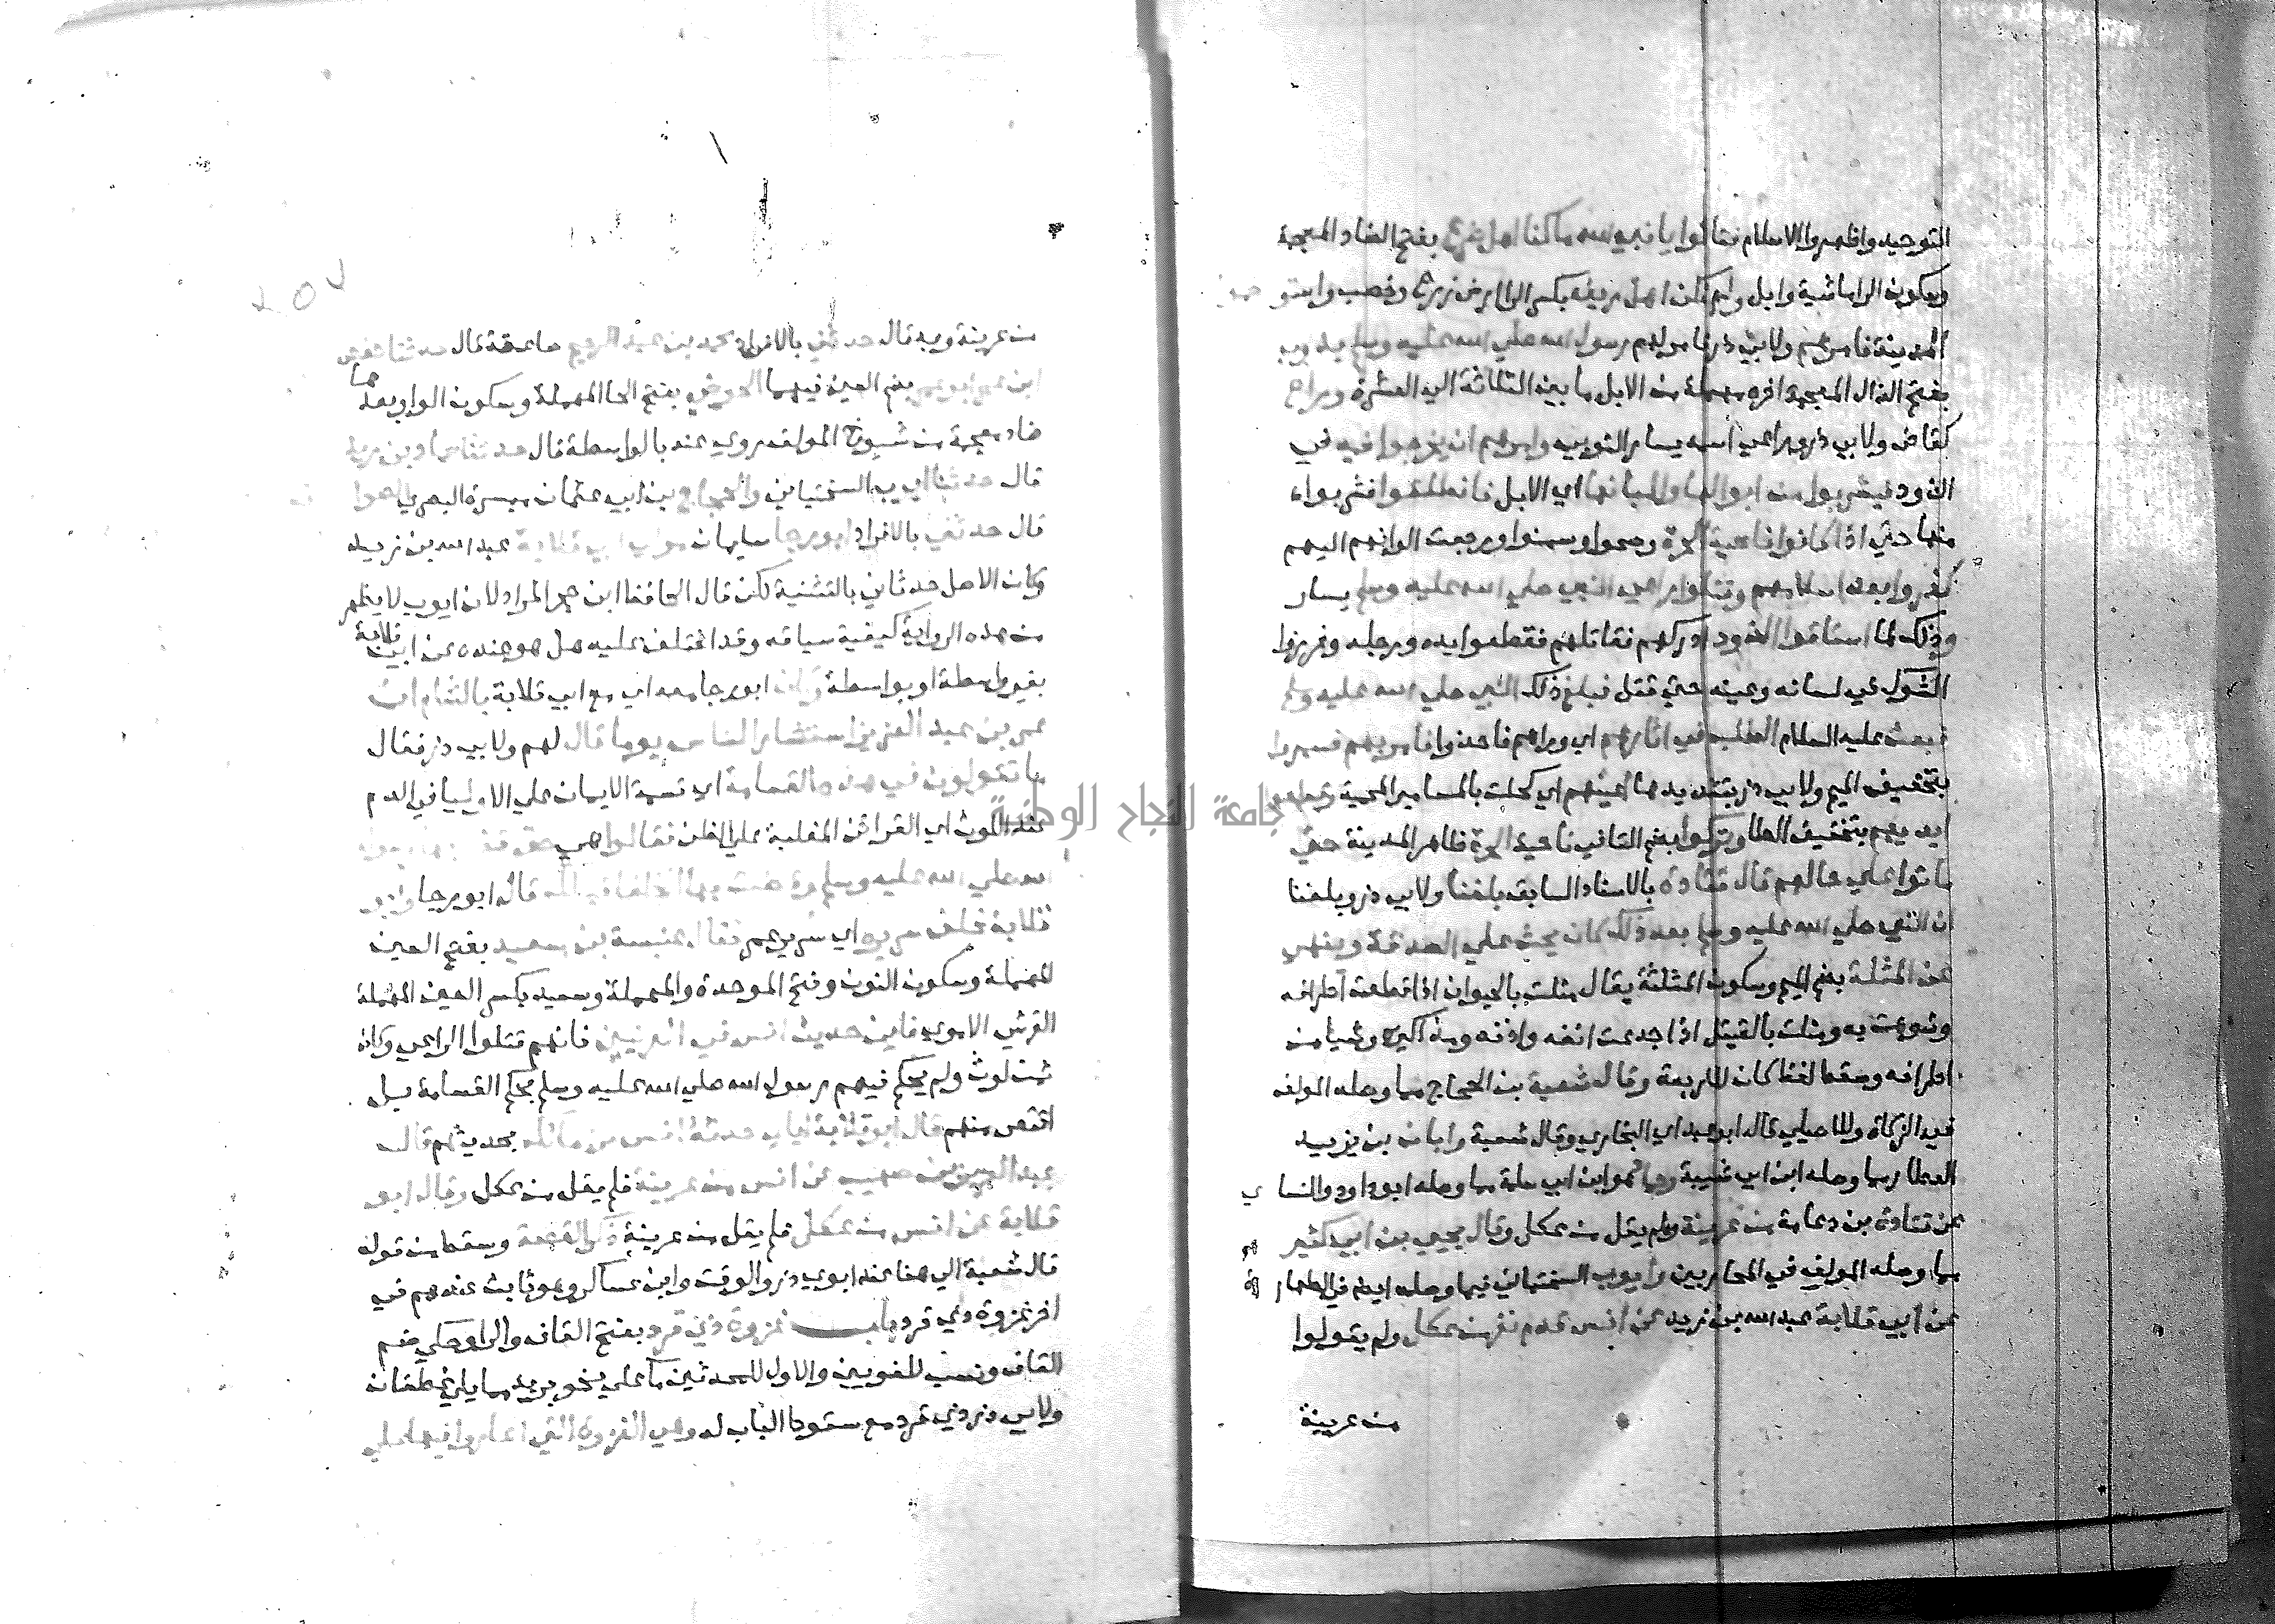 التوحيد واظهروا الاسلام فقالوا يا نبي الله ما كنا اهل ضرع بفتح الضاد المعجمة
وسكون الرا ماشية وابل ولم نكن اهل ريف بكسر الرا ارض زرع وخصب واستوخموا
المدينة فامرهم ولابي ذر فامر لهم رسول الله صلي الله عليه وسلم بذود
بفتح الذال المعجمة اخره مهملة من الابل ما بين الثلاثة الي العشرة وراع
كقاض ولابي ذر وراعي اسمه يسار النوبي وامرهم ان يخرجوا فيه في
الذود فيشربوا من ابوالها والبانها اي الابل فانطلقوا فشربوا
منها حتي اذا كانوا ناحية الحرة وصحوا وسمنوا ورجعت الوانهم اليهم
كفروا بعد اسلامهم وقتلوا راعي النبي صلي الله عليه وسلم يسار
وذلك لما استاقوا الذود ادركهم فقاتلهم فقطعوا يده ورجله وغرزوا
الشوك في لسانه وعينه حتي قتل فبلغ ذلك النبي صلي الله عليه وسلم
فبعث عليه السلام الطلب في اثارهم اي وراهم فاخذوا فامر بهم فسمروا
بتخفيف الميم ولابي ذر بتشديدها اعينهم اي كحلت بالمسامير المحمية وقطعوا
ايديهم بتخفيف الطا وتركوا بضم التا في ناحية الحرة ظاهر المدينة حتي
ماتوا علي حالهم قال قتادة بالاسناد السابق بلغنا ولابي ذر وبلغنا
ان النبي صلي الله عليه وسلم بعد ذلك كان يحث علي الصدقة وينهي
عن المثلة بضم الميم وسكون المثلثة يقال مثلت بالحيوان اذا قطعت اطرافه
وشوهت به ومثلت بالقتيل اذا جدعت انفه واذنه ومذاكيره وشيا من
اطرافه وسقط لفظ كان للاربعة وقال شعبة بن الحجاج مما وصله المولف
في الزكاة وللاصيلي قال ابو عبد اي البخاري وقال شعبة وابان بن يزيد
العطار مما وصله ابن ابي شيبة وحماد هو ابن ابي سلمة مما وصله ابو داود والنساي
عن قتادة بن دعامة من عرينة ولم يقل من عكل وقال يحيي بن ابي كثير
مما وصله المولف في المحاربين وايوب السختياني فيما وصله ايضا في الطهارة
عن ابي قلابة عبد الله بن زيد عن انس قدم نفر من عكل ولم يقولوا
من عرينة
من عرينة وبه قال حدثني بالافراد محمد بن عبد الرحيم صاعقة قال حدثنا حفص
ابن عمر ابو عمر بضم العين فيهما الحوضي بفتح الحا المهملة وسكون الواو بعدها
ضاد معجمة من شيوخ المولف روي عنه بالواسطة قال حدثنا حماد بن زيد
قال حدثنا ايوب السختياني والحجاج بن ابي عثمان ميسرة البصري الصواف
قال حدثني بالافراد ابو رجا سليمان مولي ابي قلابة عبد الله بن زيد
وكان الاصل حدثاني بالتثنية لكن قال الحافظ ابن حجر المراد لان ايوب لا يظهر
من هذه الرواية كيفية سياقه وقد اختلف عليه هل هو عنده عن ابي قلابة
بغير واسطة او بواسطة وكان ابو رجا معه اي مع ابي قلابة بالشام ان
عمر بن عبد العزيز استشار الناس يوما قال لهم ولابي ذر فقال
ما تقولون في هذه القسامة اي قسمة الايمان علي الاوليا في الدم
عند اللوث اي القرائن المغلبة علي الظن فقالوا هي حق قضي بها رسول
الله صلي الله عليه وسلم وقضت بها الخلفا قبلك قال ابو رجا وابو
قلابة خلف سريره اي سرير عمر فقال عنبسة بن سعيد بفتح العين
المهملة وسكون النون وفتح الموحدة والمهملة وسعيد بكسر العين المهملة
القرشي الاموي فاين حديث انس في العرنيين فانهم قتلوا الراعي وكان
ثمت لوث ولم يحكم فيهم رسول الله صلي الله عليه وسلم بحكم القسامة بل
اقتص منهم قال ابو قلابة اياي حدثه انس بن مالك بحديثهم قال
عبد العزيز بن صهيب عن انس من عرينة فلم يقل من عكل وقال ابو
قلابة عن انس من عكل فلم يقل من عرينة ذكر القصة وسقط من قوله
قال شعبة الي هنا عند ابوي ذر والوقت وابن عساكر وهو ثابت عندهم في
اخر غزوة ذي قرد باب غزوة ذي قرد بفتح القاف والرا وحكي ضم
القاف ونسب للغويين والاول للمحدثين ما علي نحو بريد مما يلي غطفان
ولابي ذر ذي قرد مع سقوط الباب له وهي الغزوة التي اغاروا فيها علي
جامعة النجاح الوطنية